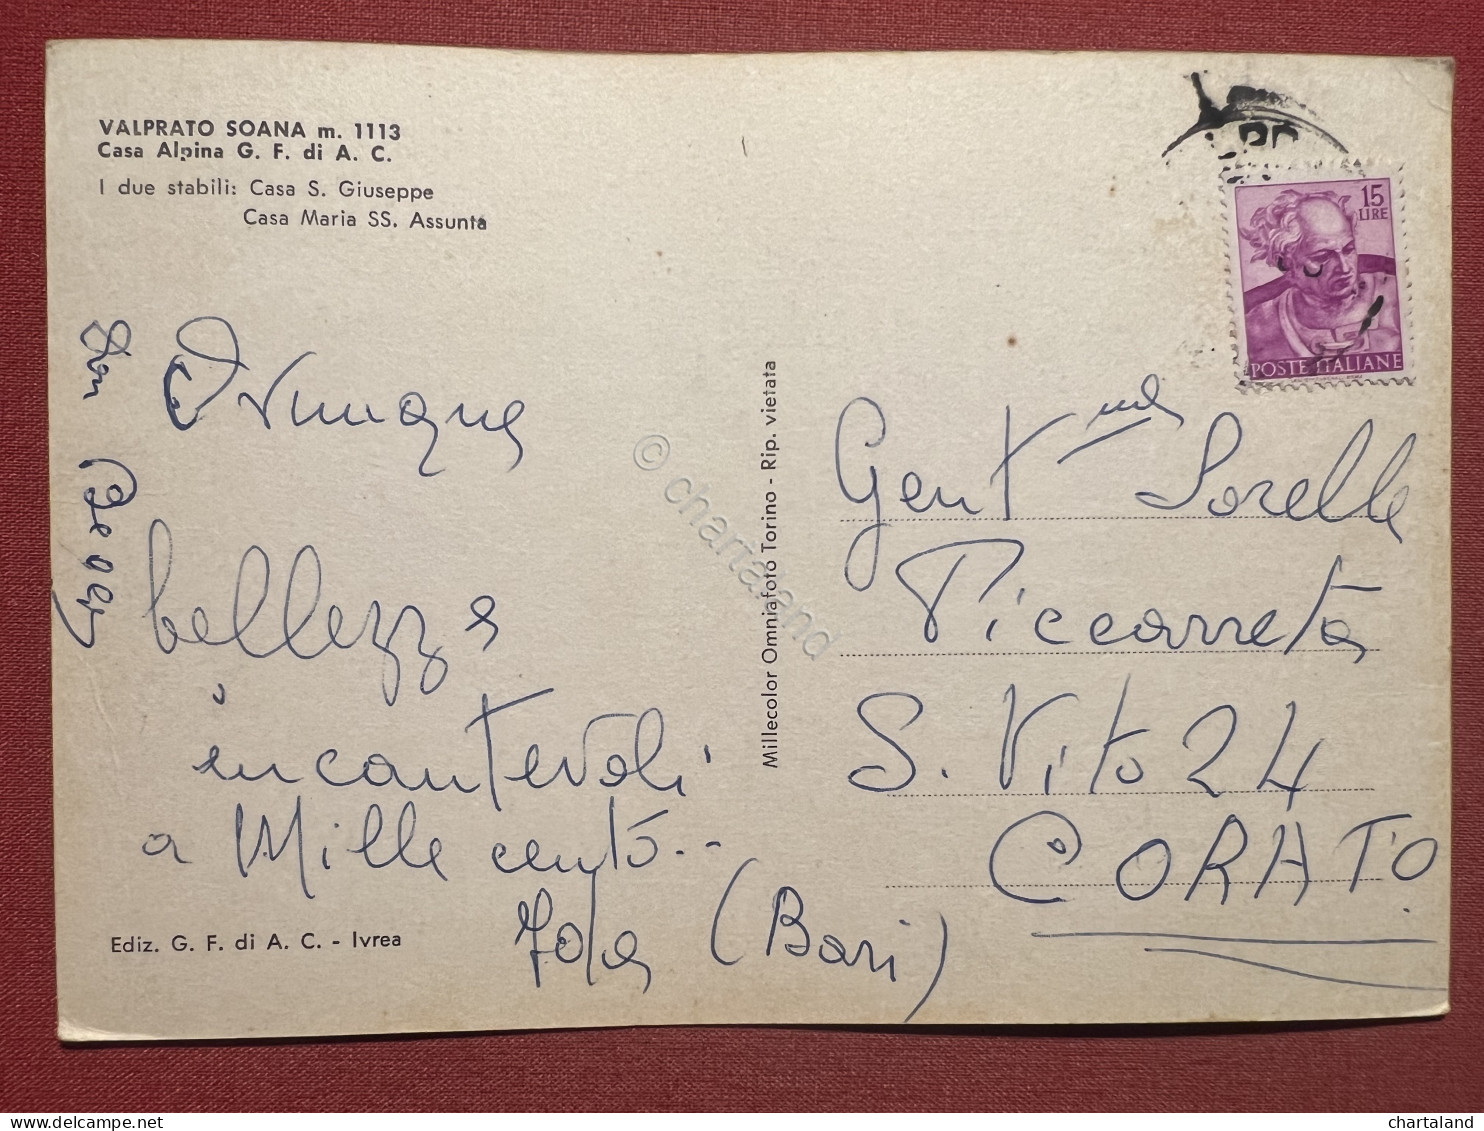 VALPRATO SOANA m. 1113
Casa Alpina G. F. di A. C.
I due stabili: Casa S. Giuseppe
Casa Maria SS. Assunta
Ovunque
bellezze
incantevoli
a Mille cento..
Ediz. G. F. di A. C. - Ivrea
Millecolor Omniafoto Torino - Rip. vietata
15
LIRE
POSTE ITALIANE
Gent.me Sorelle
Piccarreta
S. Vito 24
CORATO.
(Bari)
© chartaland
chartaland